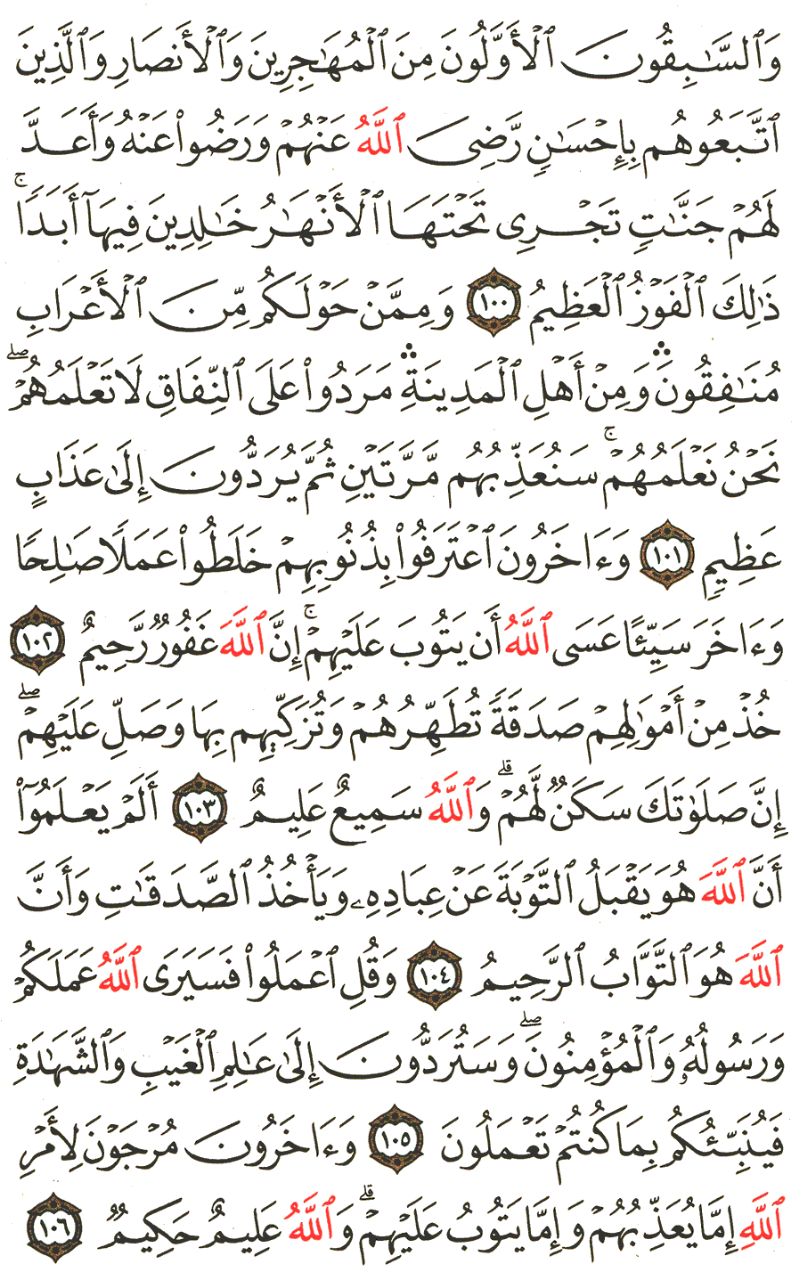 وَٱلسَّٰبِقُونَ ٱلْأَوَّلُونَ مِنَ ٱلْمُهَٰجِرِينَ وَٱلْأَنصَارِ وَٱلَّذِينَ
ٱتَّبَعُوهُم بِإِحْسَٰنٍ رَّضِىَ ٱللَّهُ عَنْهُمْ وَرَضُوا۟ عَنْهُ وَأَعَدَّ
لَهُمْ جَنَّٰتٍ تَجْرِى تَحْتَهَا ٱلْأَنْهَٰرُ خَٰلِدِينَ فِيهَآ أَبَدًا ۚ
ذَٰلِكَ ٱلْفَوْزُ ٱلْعَظِيمُ ١٠٠ وَمِمَّنْ حَوْلَكُم مِّنَ ٱلْأَعْرَابِ
مُنَٰفِقُونَ ۛ وَمِنْ أَهْلِ ٱلْمَدِينَةِ ۛ مَرَدُوا۟ عَلَى ٱلنِّفَاقِ لَا تَعْلَمُهُمْ ۖ
نَحْنُ نَعْلَمُهُمْ ۚ سَنُعَذِّبُهُم مَّرَّتَيْنِ ثُمَّ يُرَدُّونَ إِلَىٰ عَذَابٍ
عَظِيمٍ ١٠١ وَءَاخَرُونَ ٱعْتَرَفُوا۟ بِذُنُوبِهِمْ خَلَطُوا۟ عَمَلًا صَٰلِحًا
وَءَاخَرَ سَيِّئًا عَسَى ٱللَّهُ أَن يَتُوبَ عَلَيْهِمْ ۚ إِنَّ ٱللَّهَ غَفُورٌ رَّحِيمٌ ١٠٢
خُذْ مِنْ أَمْوَٰلِهِمْ صَدَقَةً تُطَهِّرُهُمْ وَتُزَكِّيهِم بِهَا وَصَلِّ عَلَيْهِمْ ۖ
إِنَّ صَلَوٰتَكَ سَكَنٌ لَّهُمْ ۗ وَٱللَّهُ سَمِيعٌ عَلِيمٌ ١٠٣ أَلَمْ يَعْلَمُوٓا۟
أَنَّ ٱللَّهَ هُوَ يَقْبَلُ ٱلتَّوْبَةَ عَنْ عِبَادِهِۦ وَيَأْخُذُ ٱلصَّدَقَٰتِ وَأَنَّ
ٱللَّهَ هُوَ ٱلتَّوَّابُ ٱلرَّحِيمُ ١٠٤ وَقُلِ ٱعْمَلُوا۟ فَسَيَرَى ٱللَّهُ عَمَلَكُمْ
وَرَسُولُهُۥ وَٱلْمُؤْمِنُونَ ۖ وَسَتُرَدُّونَ إِلَىٰ عَٰلِمِ ٱلْغَيْبِ وَٱلشَّهَٰدَةِ
فَيُنَبِّئُكُم بِمَا كُنتُمْ تَعْمَلُونَ ١٠٥ وَءَاخَرُونَ مُرْجَوْنَ لِأَمْرِ
ٱللَّهِ إِمَّا يُعَذِّبُهُمْ وَإِمَّا يَتُوبُ عَلَيْهِمْ ۗ وَٱللَّهُ عَلِيمٌ حَكِيمٌ ١٠٦